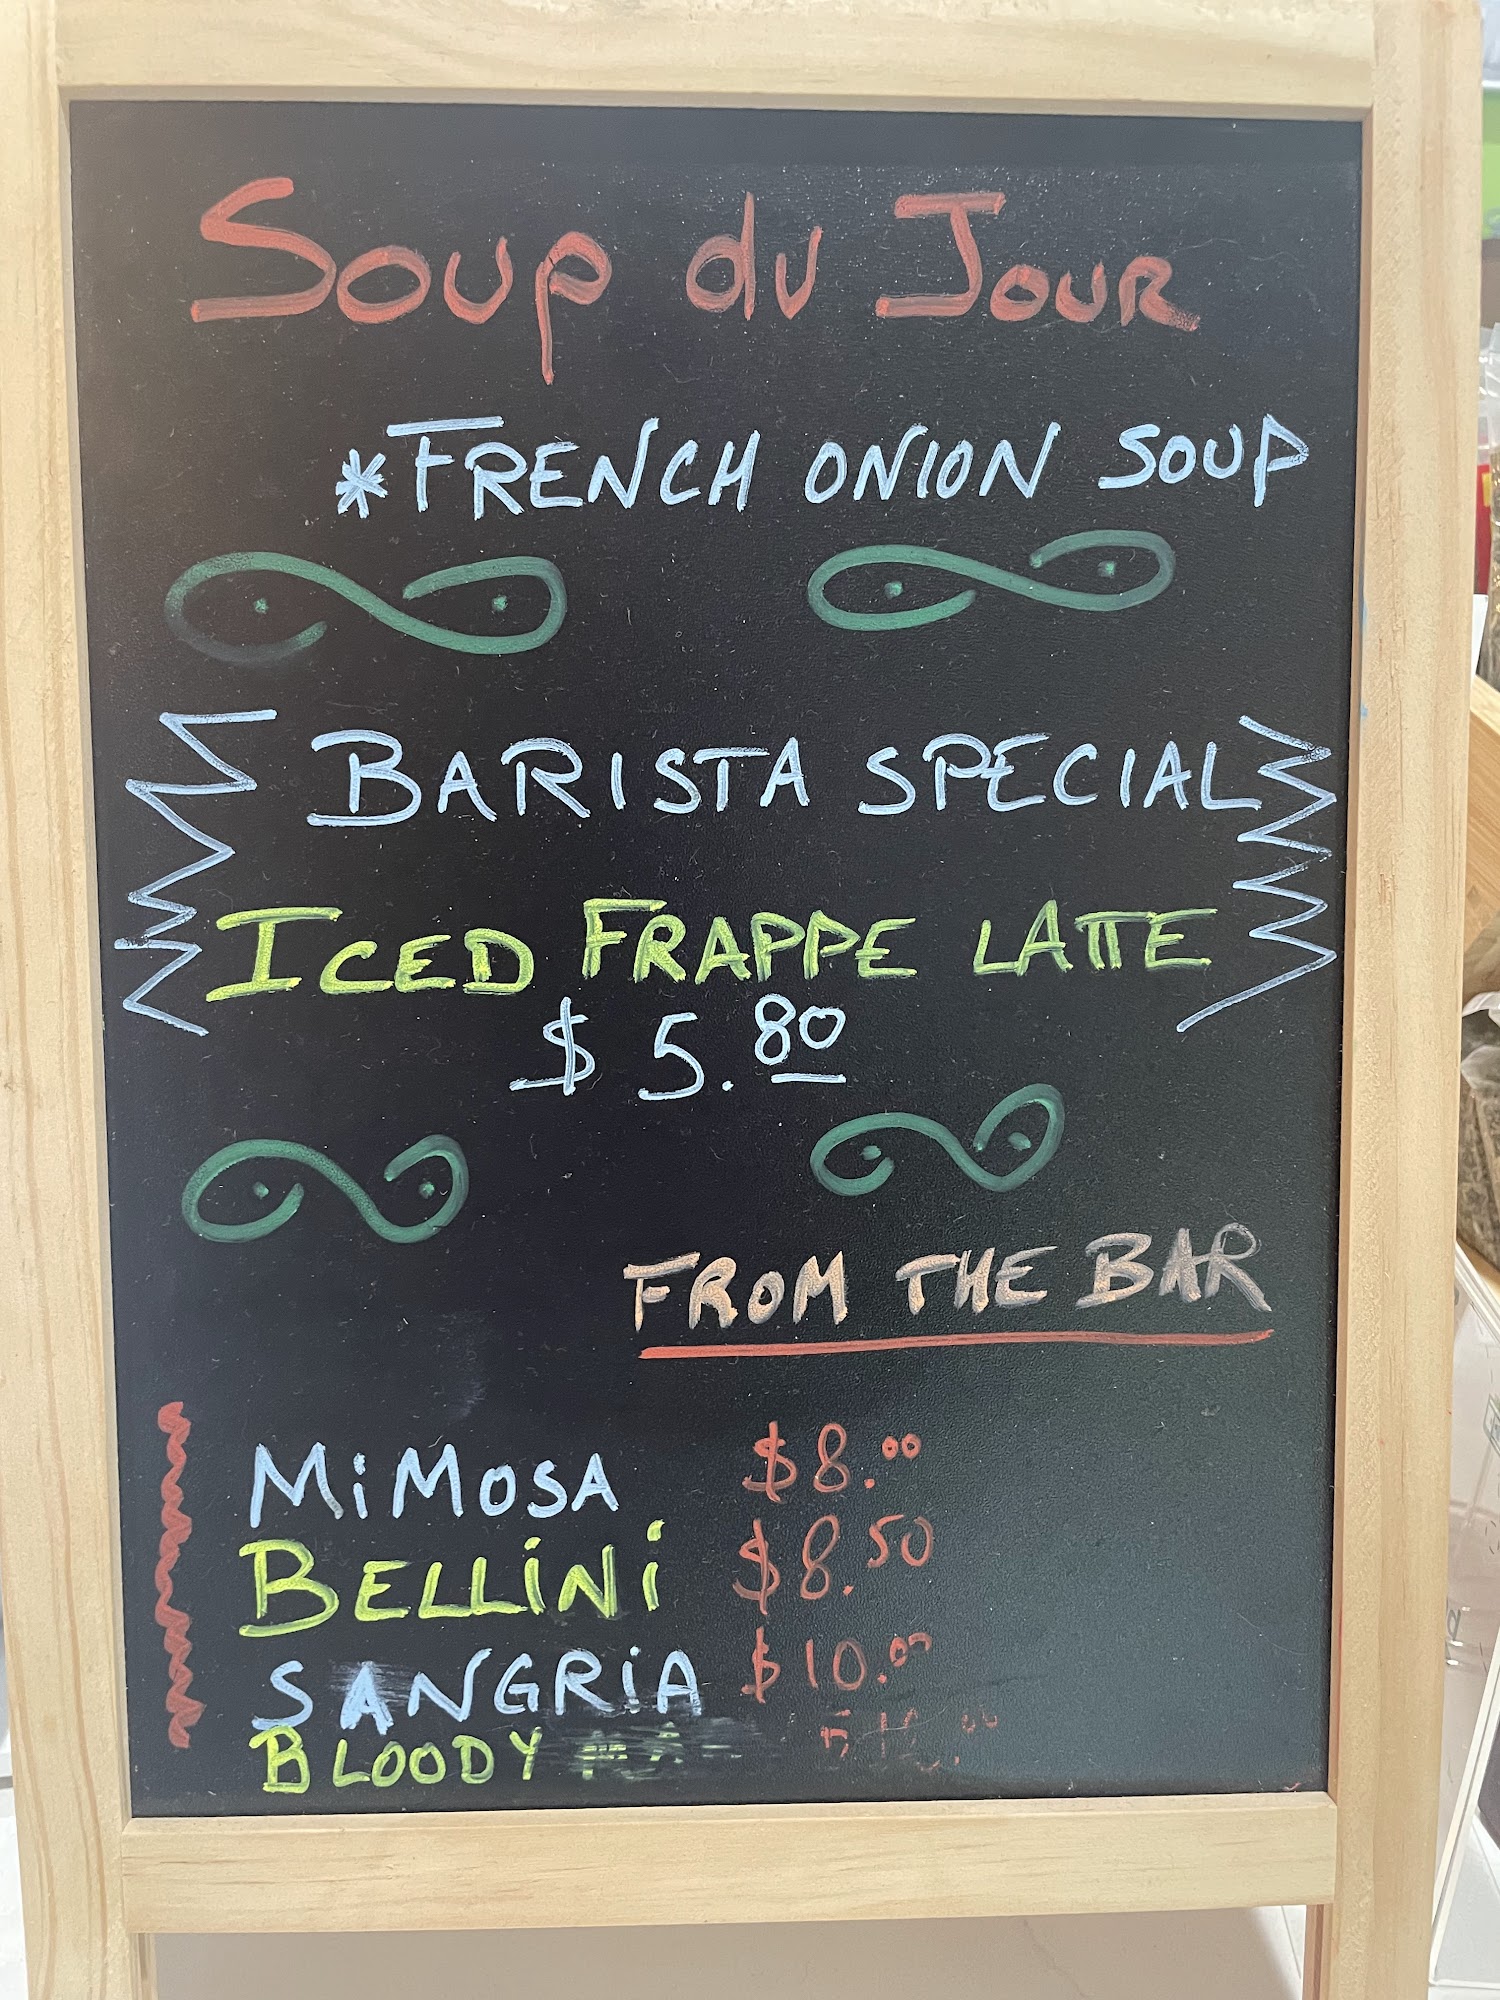 Soup du Jour
*FRENCH ONION SOUP
BARISTA SPECIAL
ICED FRAPPE LATTE
$ 5.80
FROM THE BAR
MiMOSA $8.00
BELLiNi $8.50
SANGRiA $10.00
BLOODY